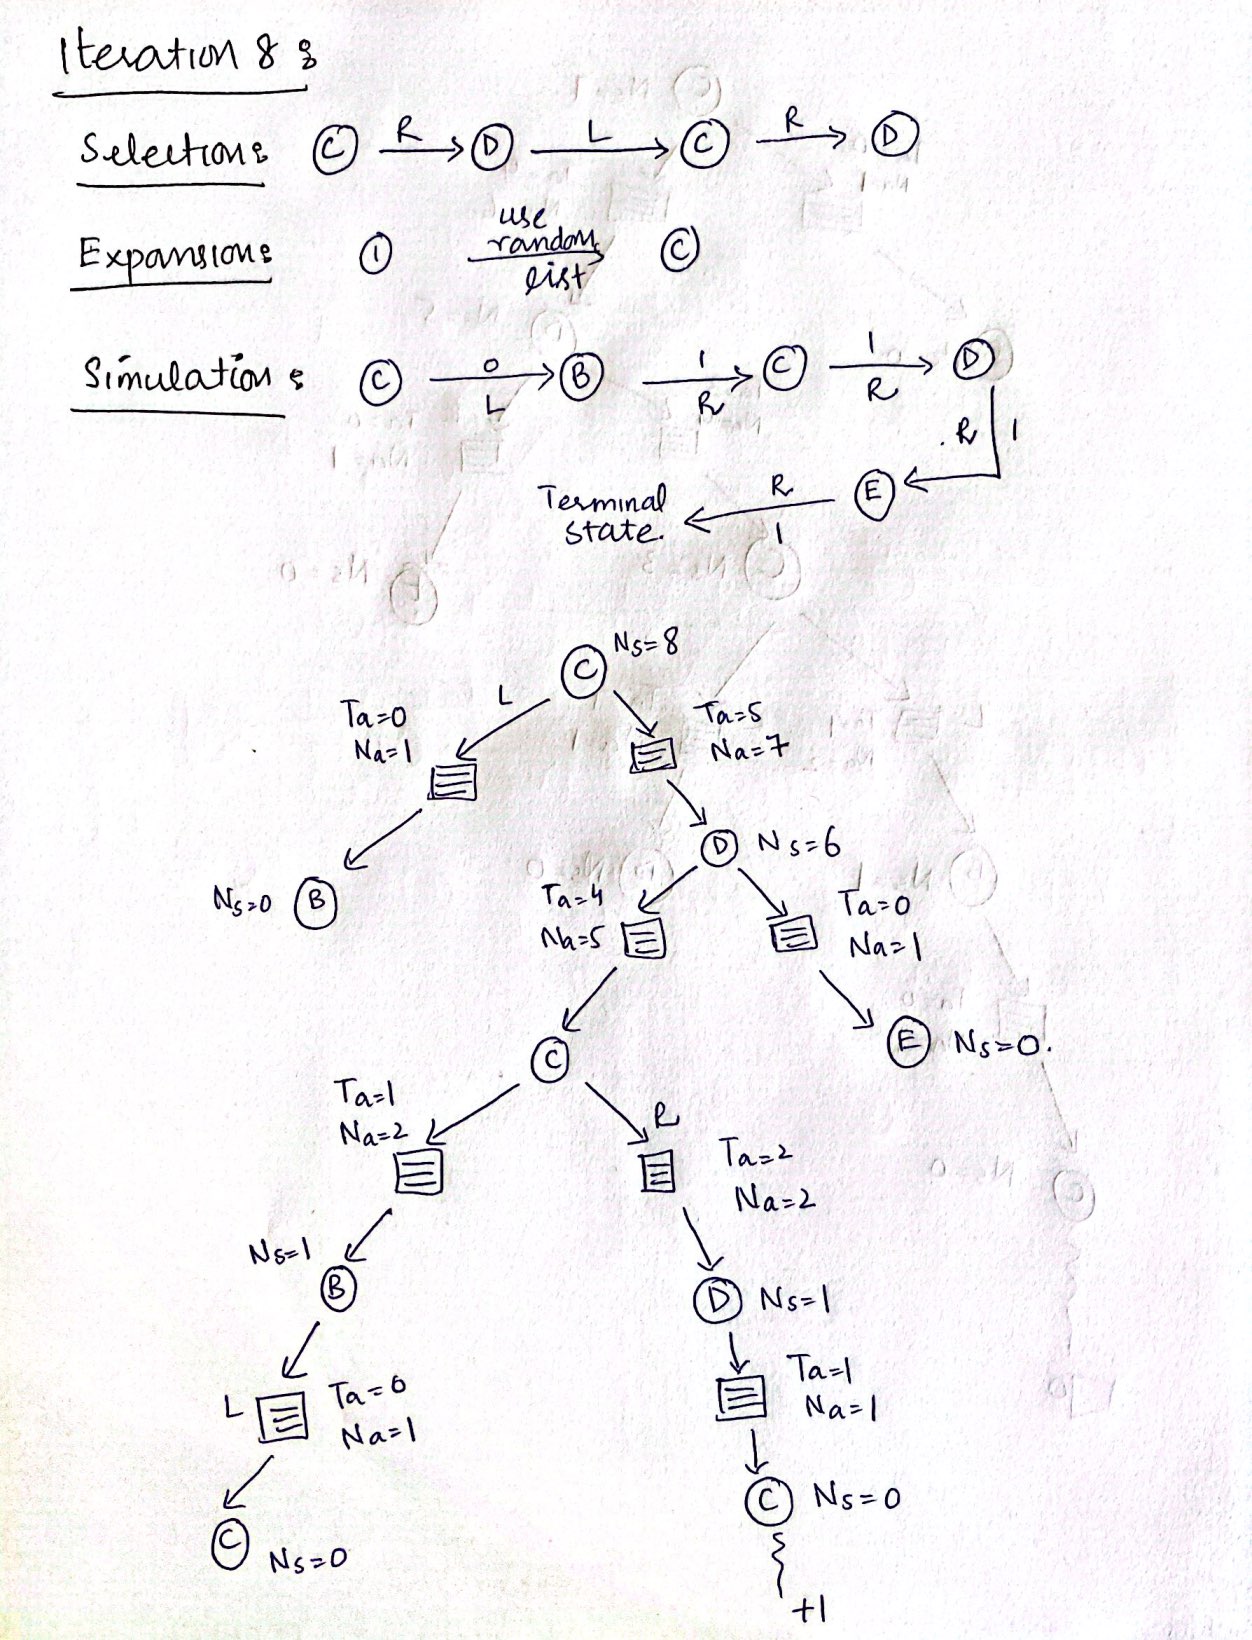 Iteration 8 :
Selection: C R D L C R D
Expansion: 1 use random list C
Simulation: C 0 L B 1 R C 1 R D
R 1
Terminal state. R 1 E
C Ns=8
L
Ta=0 Ta=5
Na=1 Na=7
D Ns=6
Ns=0 B
Ta=4 Ta=0
Na=5 Na=1
C
E Ns=0.
Ta=1 R
Na=2 Ta=2
Na=2
Ns=1
B D Ns=1
L Ta=0 Ta=1
Na=1 Na=1
C Ns=0
C Ns=0
+1